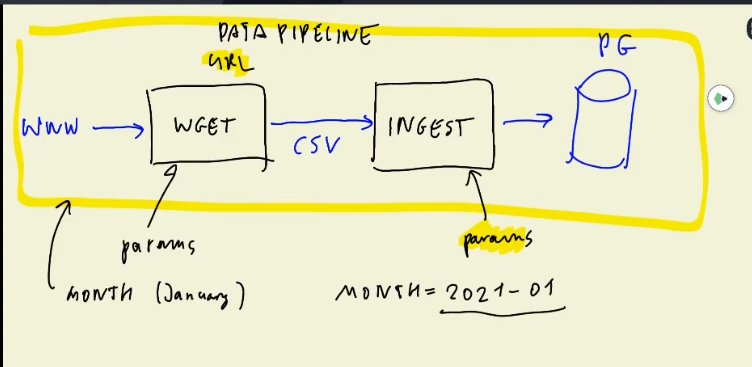 DATA PIPELINE
URL
PG
WWW
WGET
CSV
INGEST
params
params
MONTH (January)
MONTH = 2021-01